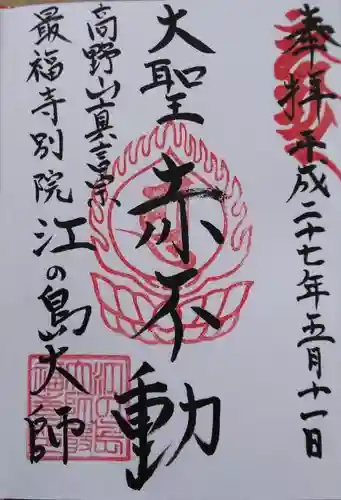 奉拝 平成二十七年五月十一日
大聖赤不動
高野山真言宗
最福寺別院江の島大師